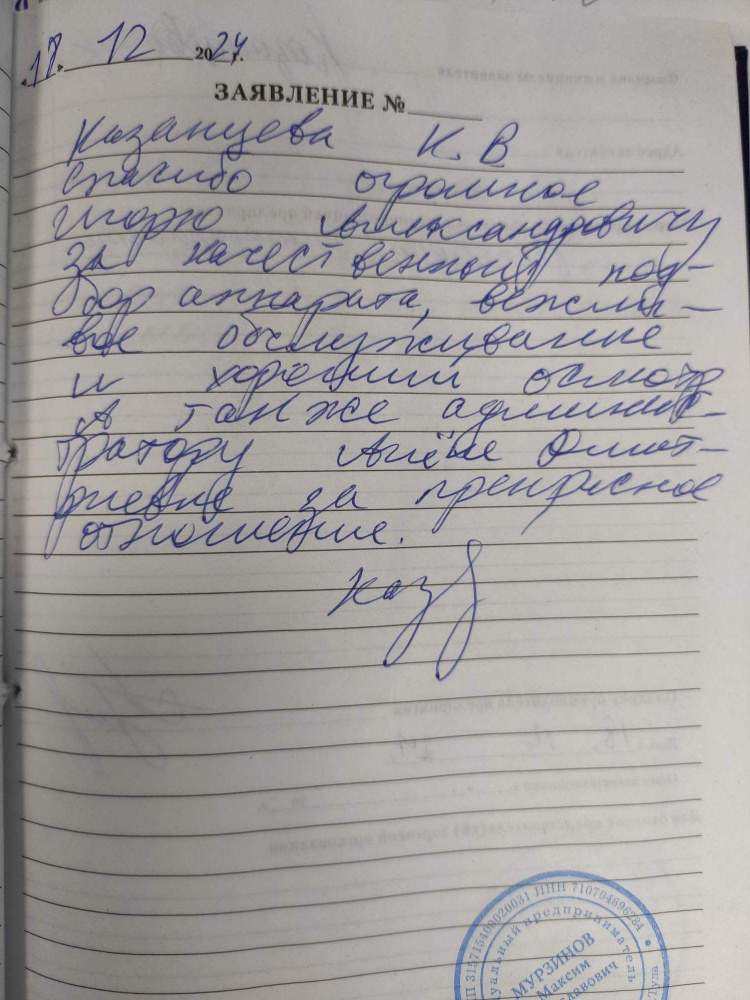 «18» 12 2024 г.
ЗАЯВЛЕНИЕ №
Казанцева К. В
Спасибо огромное
Игорю Александровичу
за качественный под-
бор аппарата, вежли-
вое обслуживание
и хороший осмотр
А также админист-
ратору Алёне Дмит-
риевне за прекрасное
отношение.
Каз
ИП 315715400020031 ИНН 710704696284
уальный предприниматель
МУРЗИНОВ
Максим
Тула